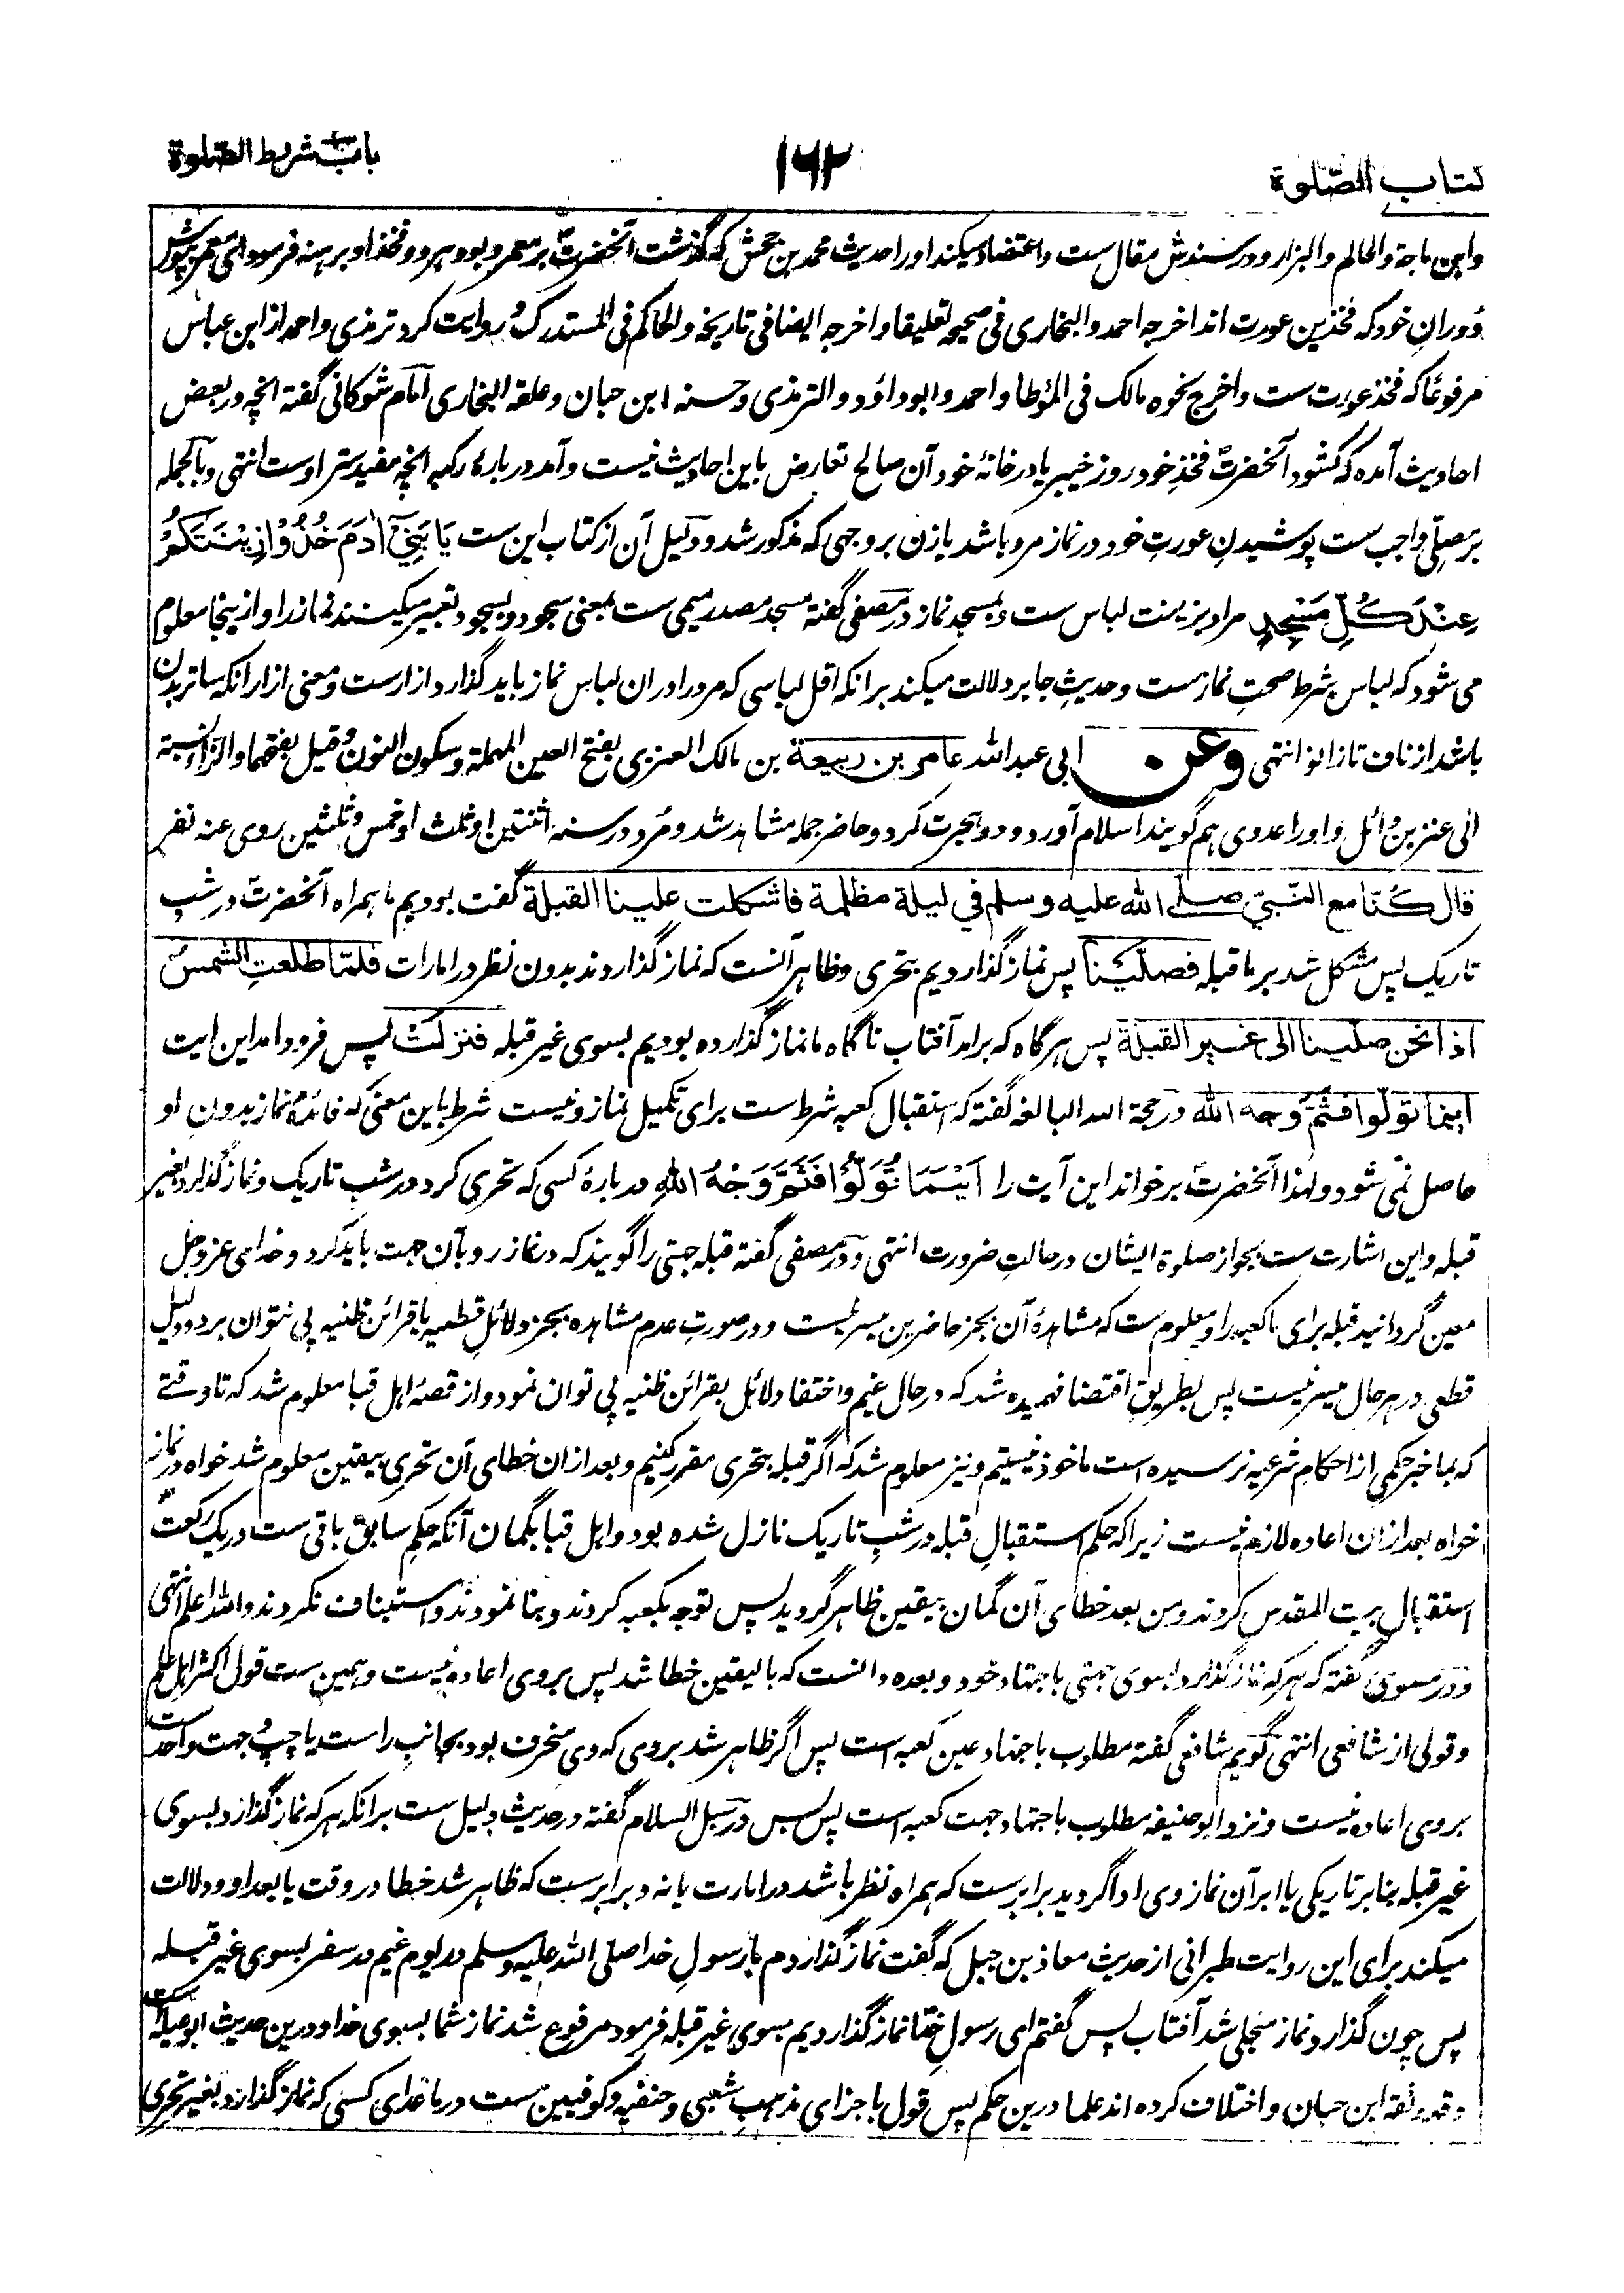 کتاب الصّلوة
۱۶۲
باب شریط الصّلوة
وابن ماجة والحاکم والبزار و در سندش مقال ست و اعتضاد میکند او را حدیث محمد بن جحش که گذشت آنحضرتؐ بر معمر و بود هر دو فخذ او برهنه فرمود ای معمر بپوش
دو ران خود که فخذین عورت اند اخرجه احمد والبخاری فی صحیحه تعلیقا و اخرجه ایضا فی تاریخه والحاکم فی المستدرک و روایت کرد ترمذی و احمد از ابن عباس
مرفوعًا که فخذ عورت ست و اخرج نحوه مالک فی المؤطا و احمد و ابو داؤد والترمذی وحسنه ابن حبان وعلقه البخاری امام شوکانی گفته انچه در بعض
احادیث آمده که کشود آنحضرتؐ فخذ خود روز خیبر یا در خانۀ خود آن صالح تعارض باین احادیث نیست و آمد در بارۀ رکبه انچه مفید ستر اوست انتهی و بالجمله
بر مصلّی واجب ست پوشیدنِ عورتِ خود در نماز مرد باشد یا زن بر وجهی که مذکور شد و دلیل آن از کتاب این ست یَا بَنِیْٓ اٰدَمَ خُذُوْا زِیْنَتَکُمْ
عِنْدَ کُلِّ مَسْجِدٍ مراد بزینت لباس ست و بمسجد نماز در مصفی گفته مسجد مصدر میمی ست بمعنی سجود و بسجود تعبیر میکنند نماز را و ازینجا معلوم
می شود که لباس شرط صحتِ نماز ست و حدیثِ جابر دلالت میکند برانکه اقل لباسی که مرد را دران لباس نماز باید گذارد ازار ست و معنی ازار انکه ساتر بدن
باشد از ناف تا زانو انتهی وعن ابی عبدالله عامر بن ربیعة بن مالک العنزی بفتح العین المهملة وسکون النون وقیل بفتحها والزا نسبة
الی عنز بن وائل و او را عدوی هم گویند اسلام آورد و دو هجرت کرد و حاضر جمله مشاهد شد و مُرد در سنه اثنتین او ثلث او خمس وثلثین روی عنه نفر
قال کُنّا مع النّبیّ صلّی الله علیه وسلم في لیلة مظلمة فاشکلت علینا القبلة گفت بودیم ما همراه آنحضرتؐ در شبِ
تاریک پس مشکل شد بر ما قبله فصلّینا پس نماز گذاردیم بتحری وظاهر آنست که نماز گذاردند بدون نظر در امارات فلمّا طلعتِ الشمسُ
اذا نحن صلّینا الی غیر القبلة پس هرگاه که برامد آفتاب ناگاه ما نماز گذارده بودیم بسوی غیر قبله فنزلتْ پس فرود امد این ایت
اینما تولّوا فثَمَّ وجه الله در حجة الله البالغه گفته که استقبال کعبه شرط ست برای تکمیل نماز و نیست شرط باین معنی که فائدۀ نماز بدونِ او
حاصل نمی شود و لهذا آنحضرتؐ برخواند این آیت را اَیْنَمَا تُوَلُّوْا فَثَمَّ وَجْهُ اللهِ در بارۀ کسی که تحری کرد در شبِ تاریک و نماز گذارد بغیر
قبله و این اشارت ست بجواز صلوة ایشان در حالتِ ضرورت انتهی و در مصفی گفته قبله جهتی را گویند که در نماز رو بآن جهت باید کرد و خدای عز و جل
معین گردانید قبله برای ما کعبه را و معلوم ست که مشاهدۀ آن بجز حاضرین میسر نیست و در صورتِ عدم مشاهده بجز دلائلِ قطعیه یا قرائن ظنیه پی نتوان برد و دلیل
قطعی در هر حال میسر نیست پس بطریق اقتضا فهمیده شد که در حال غیم و اختفاء دلائل بقرائن ظنیه پی توان نمود و از قصۀ اهل قبا معلوم شد که تا وقتے
که بما خبر حکمی از احکام شرعیه نرسیده است ماخوذ نیستیم و نیز معلوم شد که اگر قبله بتحری مقرر کنیم و بعد ازان خطای آن تحری بیقین معلوم شد خواه در نماز
خواه بعد ازان اعاده لازم نیست زیرا که حکم استقبالِ قبله در شبِ تاریک نازل شده بود و اهل قبا بگمان آنکه حکمِ سابق باقی ست در یک رکعت
استقبالِ بیت المقدس کردند و من بعد خطای آن گمان بیقین ظاهر گردید پس توجه بکعبه کردند و بنا نمودند و استیناف نکردند والله اعلم انتهی
و در مسوی گفته که هر که نماز گذارد بسوی جهتی باجتهاد خود و بعده دانست که بالیقین خطا شد پس بروی اعاده نیست و همین ست قول اکثر اهل علم
و قولی از شافعی انتهی گویم شافعی گفته مطلوب باجتهاد عین کعبه است پس اگر ظاهر شد بروی که وی منحرف بود بجانبِ راست یا چپ و جهت واحد ست
بروی اعاده نیست و نزد ابو حنیفه مطلوب باجتهاد جهت کعبه است پس بس در سبل السلام گفته در حدیث دلیل ست برانکه هر که نماز گذارد بسوی
غیر قبله بنابر تاریکی یا ابر آن نماز وی ادا گردید برابر ست که همراه نظر باشد در امارت یا نه و برابر ست که ظاهر شد خطا در وقت یا بعد او و دلالت
میکند برای این روایت طبرانی از حدیث معاذ بن جبل که گفت نماز گذاردم با رسولِ خدا صلی الله علیه وسلم در یوم غیم در سفر بسوی غیر قبله
پس چون گذارد نماز منجلی شد آفتاب پس گفتم ای رسولِ خدا نماز گذاردیم بسوی غیر قبله فرمود مرفوع شد نماز شما بسوی خدا و درین حدیث ابو عبلة ست
وقد وثقه ابن حبان و اختلاف کرده اند علما درین حکم پس قول باجزای مذهبِ شعبی و حنفیه و کوفیین ست در ماعدای کسی که نماز گذارد بغیر تحری